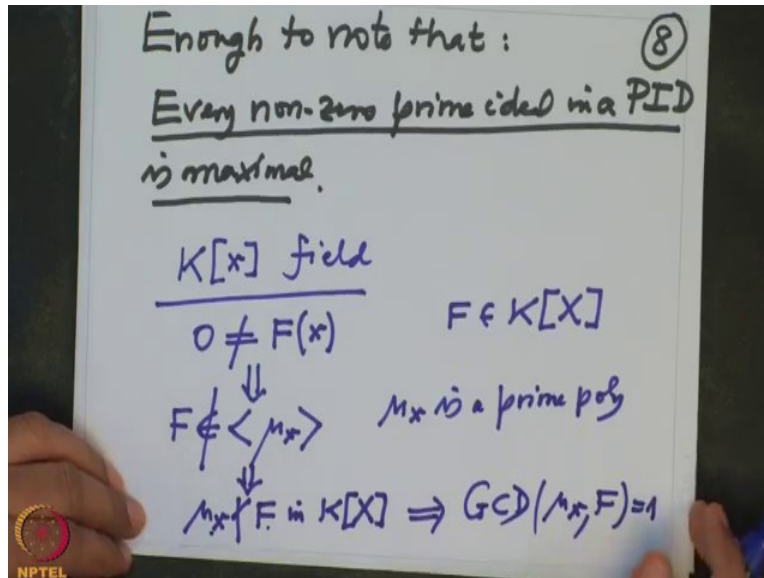 Enough to note that : ⑧
Every non-zero prime ideal in a PID
is maximal.
K[x] field
0 ≠ F(x) F ∈ K[X]
⇓
F ∉ < μx > μx is a prime poly
⇓
μx ∤ F in K[X] ⇒ GCD(μx, F)=1
NPTEL